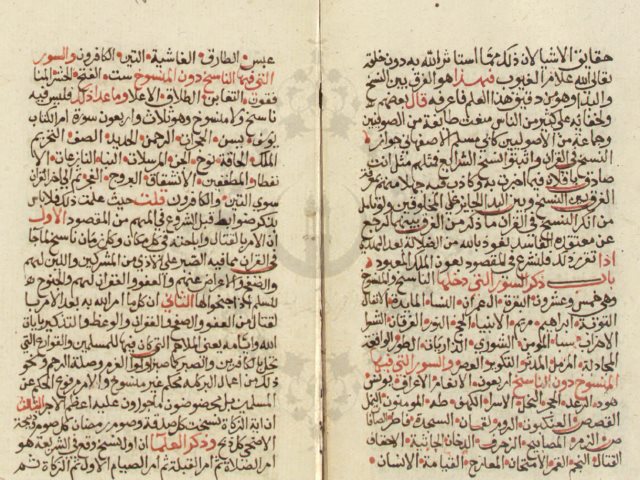 حقائق الاشيا لان ذلك مما استاثر الله به دون خلقه
تعالى الله علام الغيوب فبهذا هو الفرق بين النسخ
والبدا وهو من دقيق هذا العلم فاعرفه قال بعضهم
ولخفائه على كثير من الناس منعت طائفة من الصوليين
وجماعة من الاصوليين كابي مسلم الاصفهاني جواز
النسخ في القران واثبتوا نسخ الشرائع
الفرق بين النسخ وبين البدا الجائز على المخلوقين
من انكر النسخ في القران ما ذكر من الفرق بينهما ليرجع
عن معتقده الفاسد نعوذ بالله من الضلالة بعد الهداية
اذا تقرر ذلك فلنشرع في المقصود بعون الملك المعبود
باب ذكر السور التي دخلها الناسخ والمنسوخ
وهي خمس وعشرون البقرة ال عمران النسا المائدة الانفال
التوبة ابراهيم مريم الانبيا الحج النور الفرقان الشعرا
الاحزاب سبا المومن الشورى الذاريات الطور الواقعة
المجادلة المزمل المدثر التكوير العصر والسور التي فيها
المنسوخ دون الناسخ اربعون الانعام الاعراف يونس
هود الرعد الحجر النحل الاسرا الكهف طه المومنون النمل
القصص العنكبوت الروم لقمان السجدة فاطر الصافات
ص الزمر المصابيح الزخرف الدخان الجاثية الاحقاف
القتال النجم القمر الامتحان المعارج القيامة الانسان
عبس الطارق الغاشية التين الكافرون والسور
التي فيها الناسخ دون المنسوخ ست الفتح الحشر المنا
فقون التغابن الطلاق الاعلا وما عدا ذلك فليس فيه
ناسخ ولا منسوخ وهو ثلاث واربعون سورة ام الكتاب
يوسف يس الحجرات الرحمن الحديد الصف التحريم
الملك الحاقة نوح الجن المرسلات النبا النازعات الا
نفطار المطففين الانشقاق البروج الفجر ثم الى اخر القران
سوى التين والكافرون قلت حيث علمت ذلك فلا باس
بذكر ضوابط قبل الشروع في المهم من المقصود الاول
ان الامر بالقتال واباحته في كل مكان وكل زمان ناسخ لما جا
في القران مما فيه الصبر على الاذى من المشركين واللين لهم
والصفح والاعراض عنهم والعفو والغفران لهم والجنوح
للسلم اذا جنحوا لها الثاني ان كل ما امر الله به بعد الامر با
لقتال من العفو والصفح والغفران والوعظ والتذكير بايات
الله
ذلك من اعمال البر فمحكم غير منسوخ
المسلمين بل محضوضون ماجورون عليه اعظم الاجر الثالث
ان اية الزكاة نسخت كل صدقة وصوم رمضان كل صوم وذبيحة
الاضحى كل ذبح وذكر العلما ان اول نسخ وقع في الشريعة هو
امر الصلاة ثم امر القبلة ثم امر الصيام الاول ثم الزكاة ثم